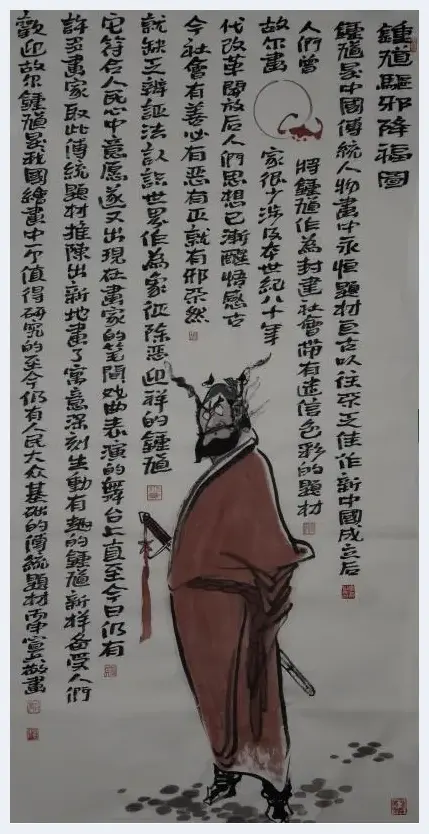 鍾馗驅邪降福圖
鍾馗是中國傳統人物畫中永恒題材亘古以往不乏佳作新中國成立后
人們曾將鍾馗作為封建社會帶有迷信色彩的題材
故尔畫家很少涉及本世紀八十年
代改革開放后人們思想已漸醒悟感古
今社會有善必有惡有正就有邪不然
就缺乏辨証法認識世界作為家征除惡迎祥的鍾馗
它符合人民心中意愿遂又出現在畫家的笔間戏曲表演的舞台上直至今日仍有
許多畫家取此傳統題材推陳出新地畫了寓意深刻生動有趣的鍾馗新样备受人們
歡迎故尔鍾馗是我國繪畫中一个值得研究的至今仍有人民大众基础的傳統題材丙申敬畫